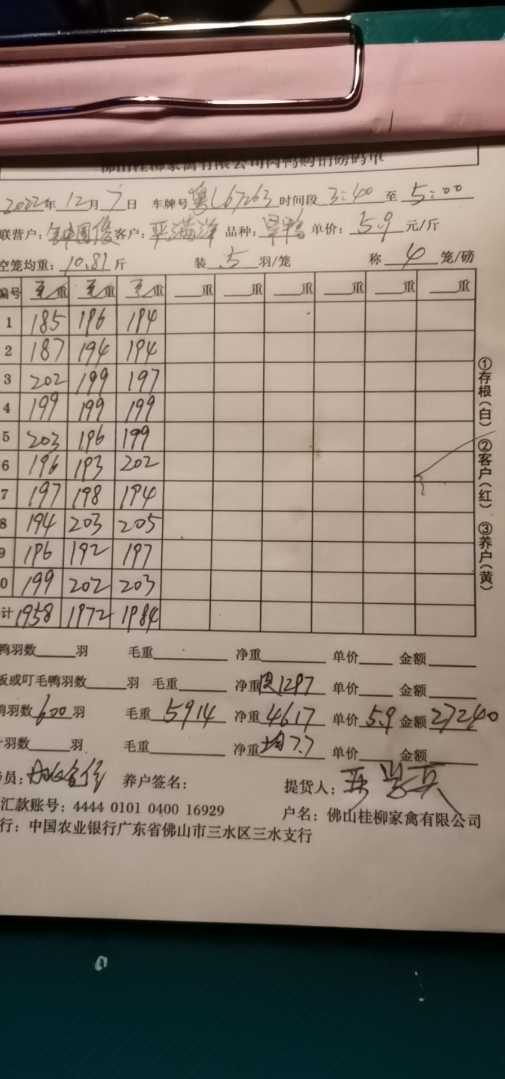 佛山桂柳家禽有限公司肉鸭购销磅码单
2022年12月7日 车牌号粤L67263时间段3:40至5:00
联营户: 客户: 品种: 单价:5.9元/斤
空笼均重:10.81斤 装5羽/笼 称4笼/磅
编号 毛重 毛重 毛重 重 重 重 重
1 185 196 194
2 187 194 194
3 202 199 197
4 199 199 199
5 203 196 199
6 196 193 202
7 197 198 194
8 194 203 205
9 196 192 197
0 199 202 203
计 1958 1972 1984
①存根(白) ②客户(红) ③养户(黄)
鸭羽数 羽 毛重 净重 单价 金额
板或叮毛鸭羽数 羽 毛重 净重 1297 单价 金额
鸭羽数600羽 毛重5914 净重4617 单价5.9 金额27240
羽数 羽 毛重 净重均7.7 单价 金额
员: 养户签名: 提货人:
汇款账号:4444 0101 0400 16929 户名:佛山桂柳家禽有限公司
行:中国农业银行广东省佛山市三水区三水支行